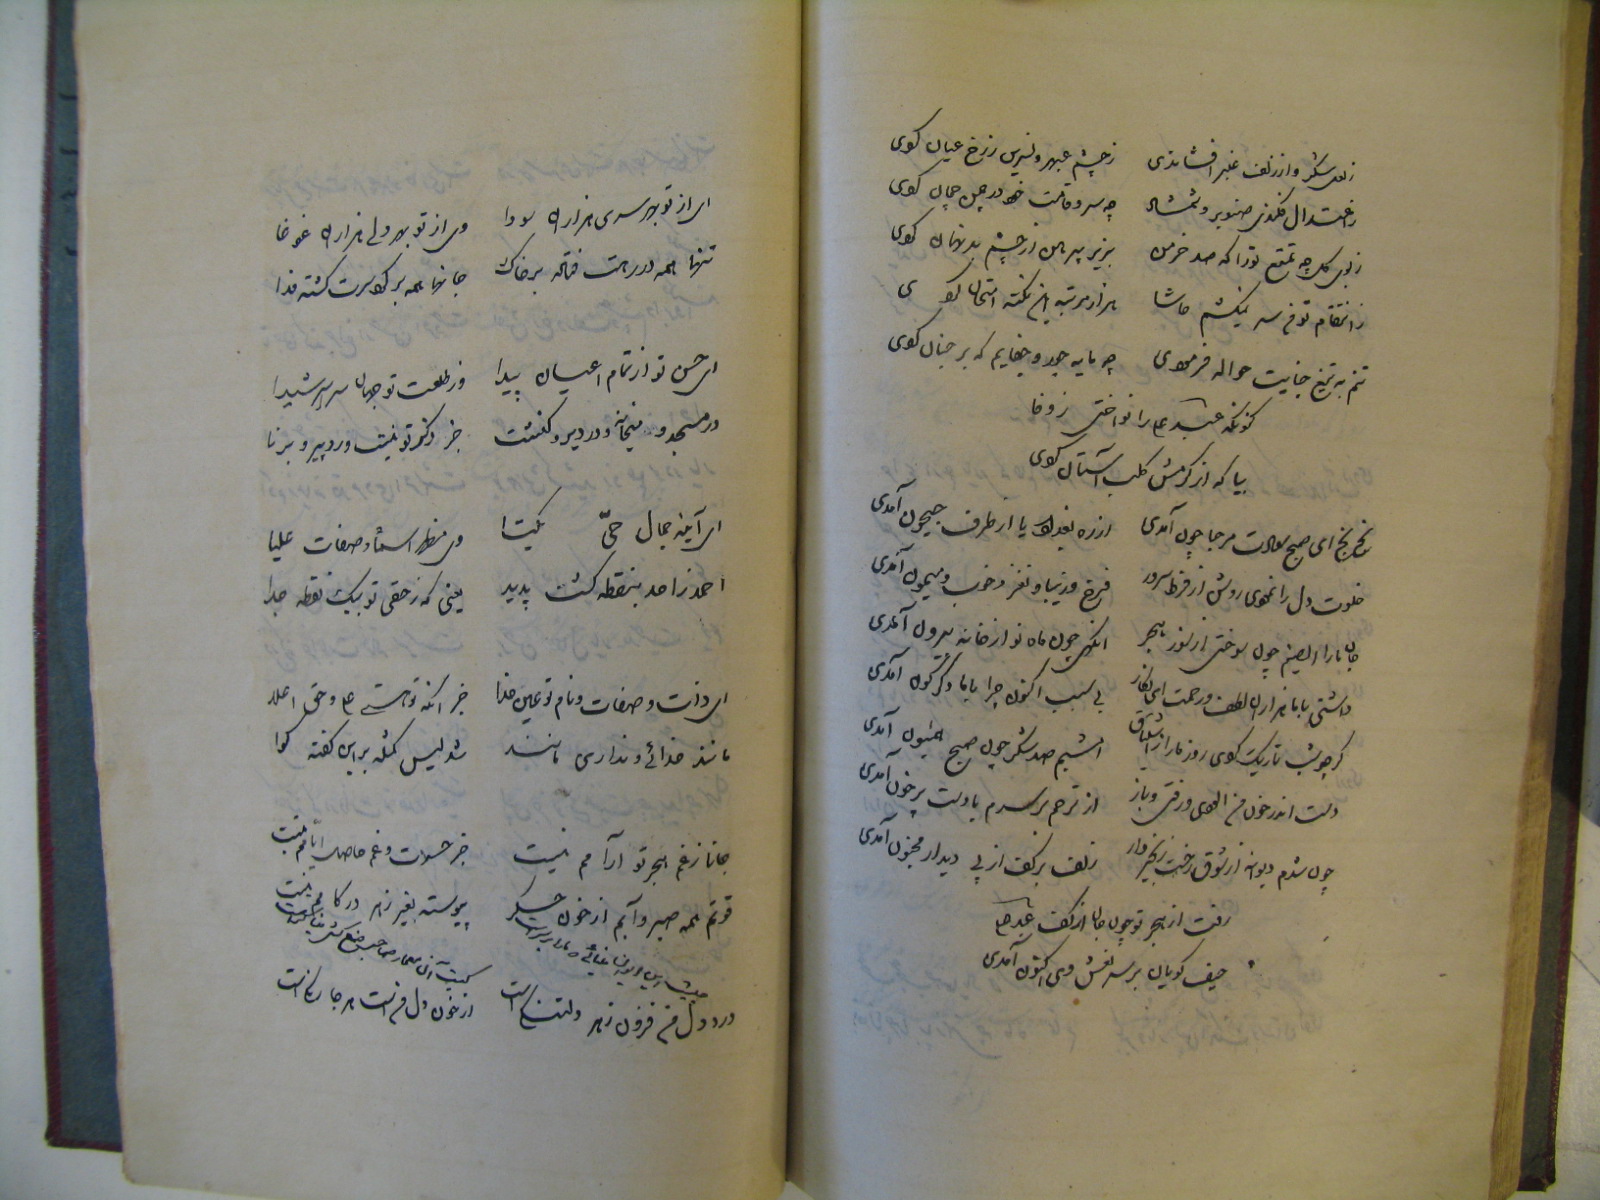 زلعل شکر و از زلف عنبر افشاندی ز چشم عبهر و نسرین ز رخ عیان کوی
ز اعتدال فکندی صنوبر و شمشاد چه سرو قامت خود در چمن چمان کوی
ز بوی گل چه تمتع تو را که صد خرمن بزیر پیرهن از چشم بد نهان کوی
ز انتقام تو من سر نمیکشم حاشا هزار مرتبه این نکته امتحان کوی
تنم به تیغ جنایت حواله فرمودی چه مایه جور و جفایم که بر جنان کوی
کنونکه عبد علی را نواختی ز وفا
بیا که از کرمش کلب آستان کوی
بخ بخ ای صبح سعادت مرحبا چون آمدی از ره بغداد یا از طرف جیحون آمدی
خلوت دل را نمودی روشن از فرط سرور فرخ و زیبا و نغز و خوب و میمون آمدی
جان ما را ای صنم چون سوختی از نور هجر آنگهی چون ماه نو از خانه بیرون آمدی
داشتی با ما هزاران لطف و رحمت ای نگار بی سبب اکنون چرا با ما دگرگون آمدی
گر چو شب تاریک کوی روز ما را ز اشتیاق صد شکر چون صبح آمدی
دست اندر خون من آلودی و رفتی و باز از ترحم بر سرم با دست پر خون آمدی
چون شدم دیوانه از شوق رخت زنجیروار زلف بر کف از پی دیدار مجنون آمدی
رفت از هجر تو چون جان از کف عبد علی
حیف کویان بر سر نعشش وی اکنون آمدی
ای از تو بهر سری هزاران سودا وی از تو بهر دلی هزاران غوغا
تنها همه در رهت فتاده بر خاک جانها همه بر سرت کشته فدا
ای حسن تو از تمام اعیان پیدا وز طلعت تو جهان سراسر شیدا
در مسجد و میخانه و در دیر و کنشت جز ذکر تو نیست ورد پیر و برنا
ای آینه جمال حیّ یکتا وی مظهر اسما و صفات علیا
احمد ز احد بنقطه کشت پدید یعنی که ز حقی تو بیک نقطه جدا
ای ذات و صفات و نام تو عین خدا جز آنکه تو هستی و حق اعلا
مانند خدائی و نداری مانند شد لیس کمثله بر این کفته کوا
جانا ز غم هجر تو آرامم نیست جز حسرت و غم حاصل ایامم نیست
قوتم همه صبر و آبم از خون جگر پیوسته بغیر زهر در کامم نیست
درد دل من فزون ز هر دلتنگ است از خون دل من است هر جا رنگ است